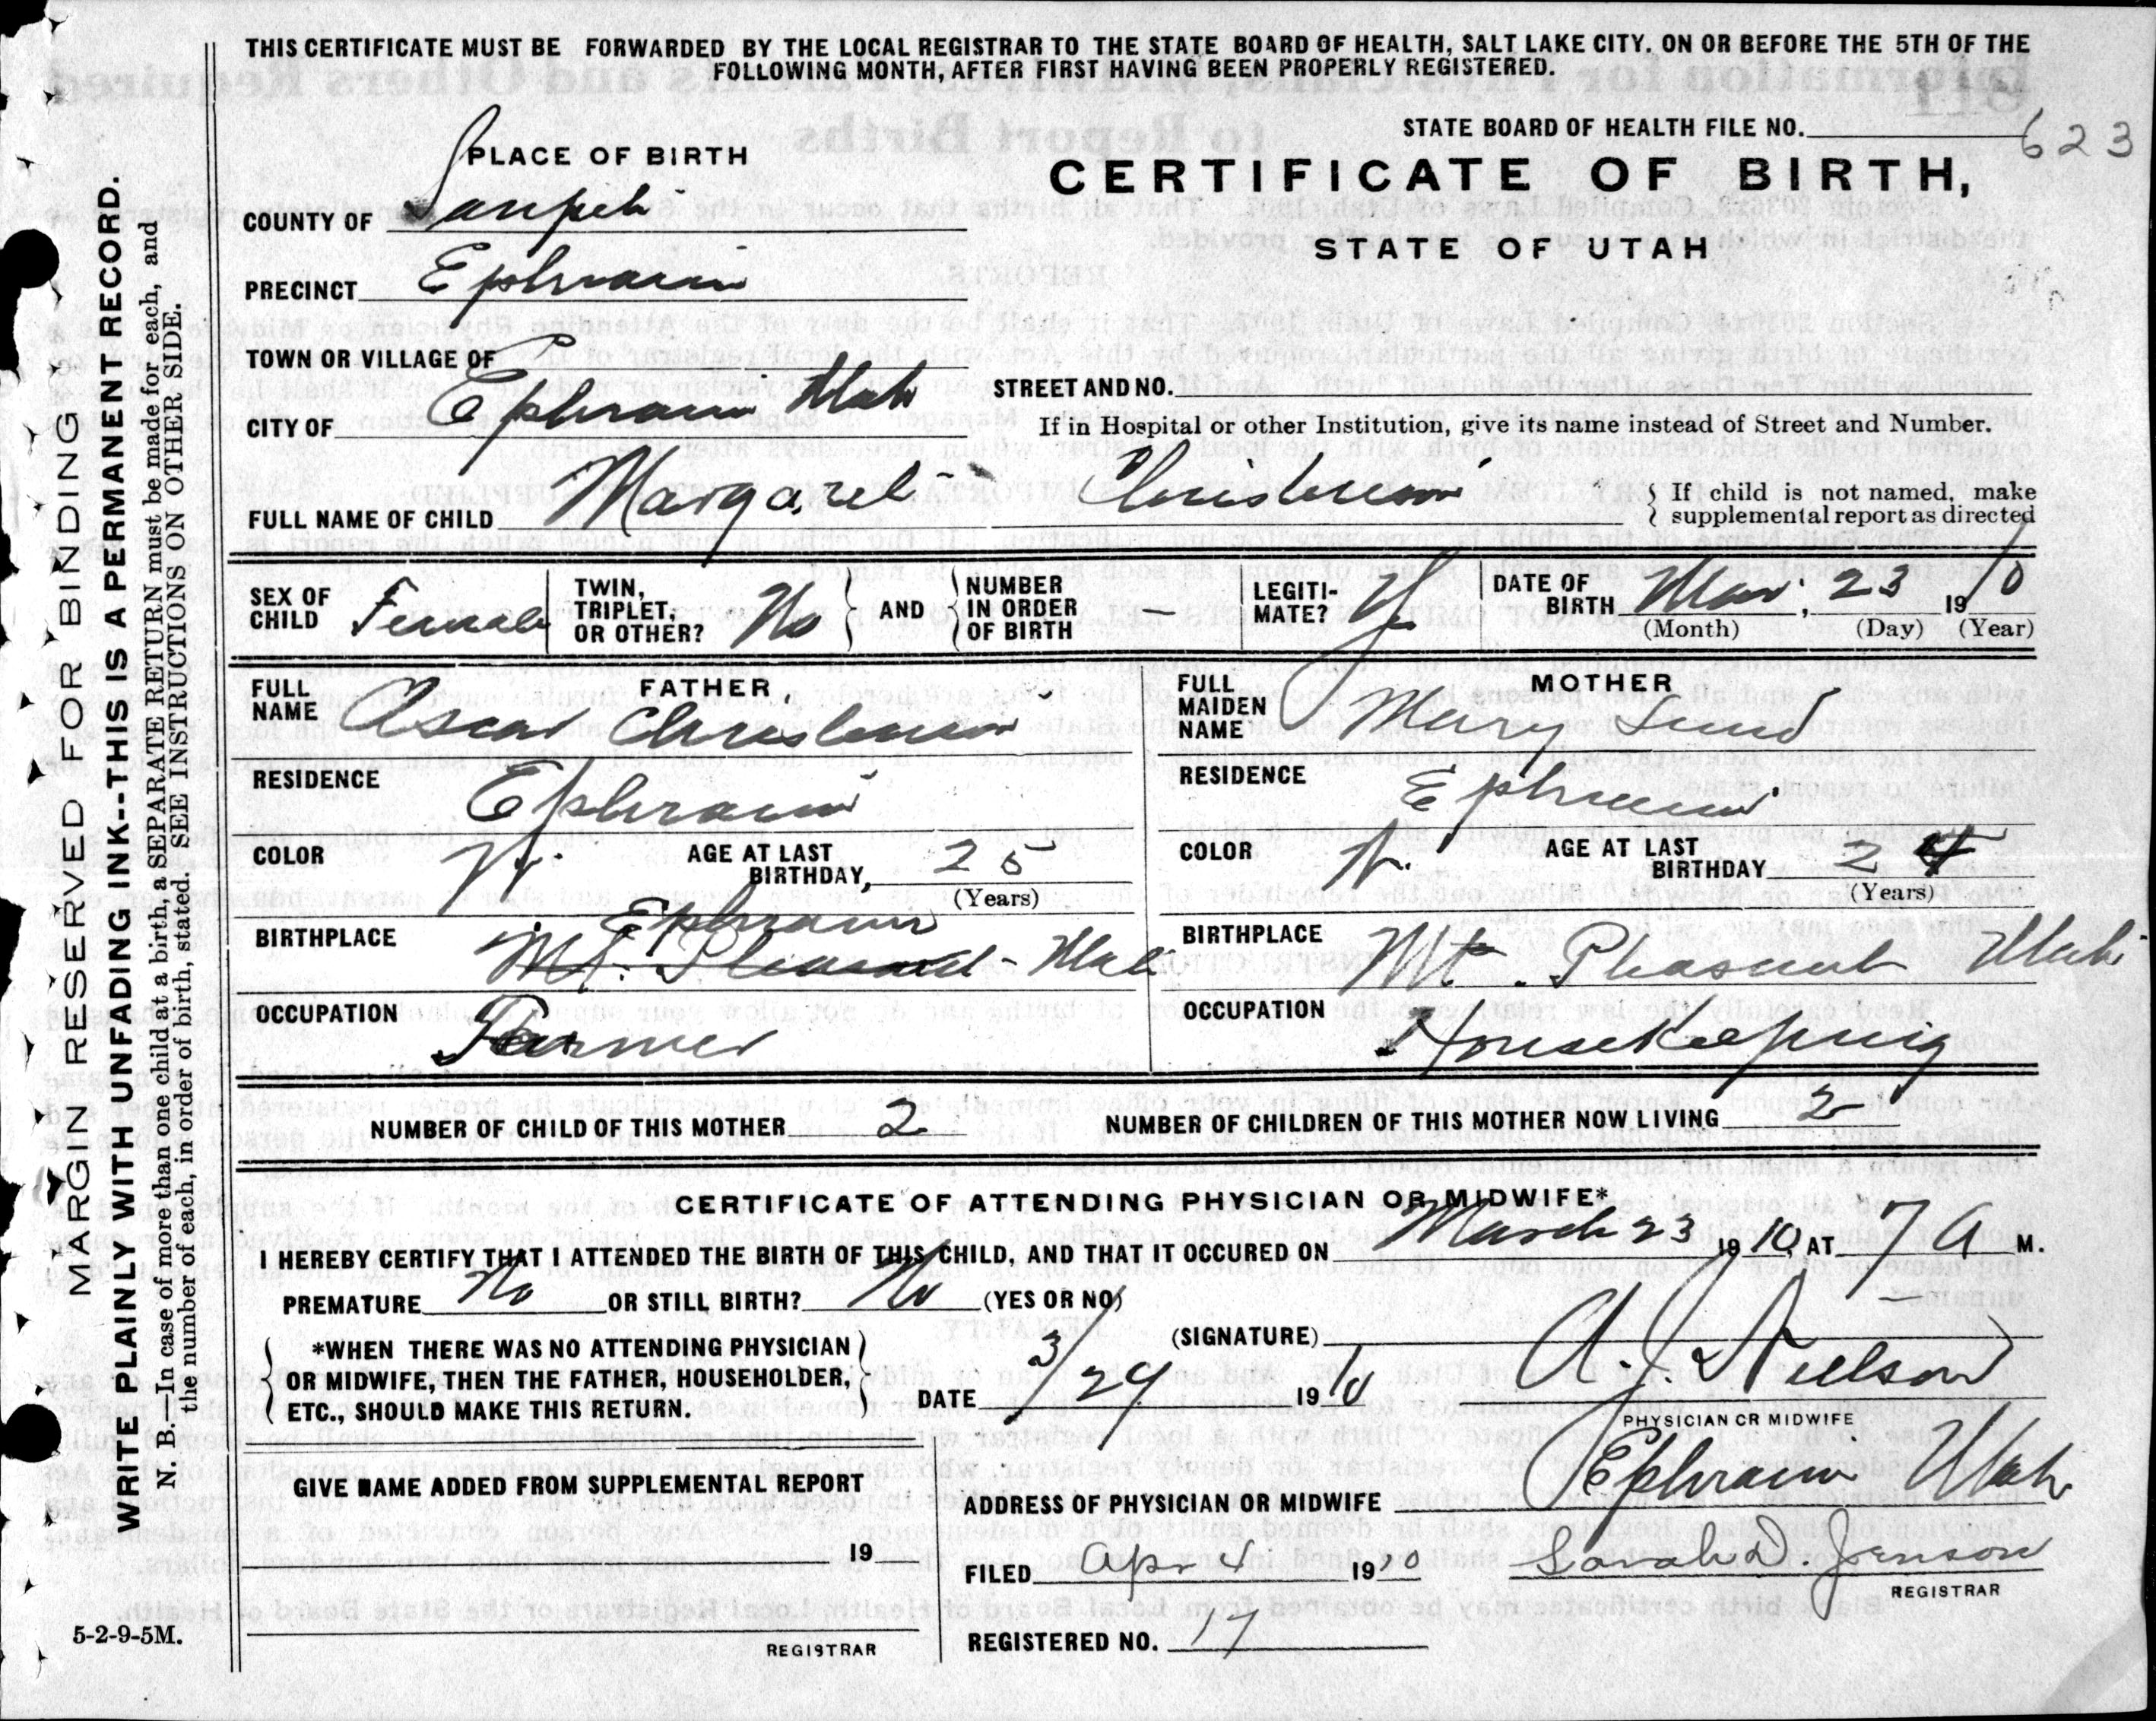 THIS CERTIFICATE MUST BE FORWARDED BY THE LOCAL REGISTRAR TO THE STATE BOARD OF HEALTH, SALT LAKE CITY. ON OR BEFORE THE 5TH OF THE
FOLLOWING MONTH, AFTER FIRST HAVING BEEN PROPERLY REGISTERED.
STATE BOARD OF HEALTH FILE NO. 623
PLACE OF BIRTH
CERTIFICATE OF BIRTH,
STATE OF UTAH
COUNTY OF Sanpete
PRECINCT Ephraim
TOWN OR VILLAGE OF
CITY OF Ephraim Utah
STREET AND NO.
If in Hospital or other Institution, give its name instead of Street and Number.
FULL NAME OF CHILD Margaret Christensen
If child is not named, make
supplemental report as directed
SEX OF CHILD Female
TWIN, TRIPLET, OR OTHER? No
AND
NUMBER IN ORDER OF BIRTH —
LEGITI-MATE? Yes
DATE OF BIRTH Mar. 23 1910
(Month) (Day) (Year)
FATHER
FULL NAME Oscar Christensen
RESIDENCE Ephraim
COLOR W.
AGE AT LAST BIRTHDAY, 25
(Years)
BIRTHPLACE Ephraim
Mt. Pleasant - Utah
OCCUPATION Farmer
MOTHER
FULL MAIDEN NAME Mary Lund
RESIDENCE Ephraim
COLOR W.
AGE AT LAST BIRTHDAY 24
(Years)
BIRTHPLACE Mt. Pleasant Utah
OCCUPATION Housekeeping
NUMBER OF CHILD OF THIS MOTHER 2
NUMBER OF CHILDREN OF THIS MOTHER NOW LIVING 2
CERTIFICATE OF ATTENDING PHYSICIAN OR MIDWIFE*
I HEREBY CERTIFY THAT I ATTENDED THE BIRTH OF THIS CHILD, AND THAT IT OCCURED ON March 23 1910, AT 7 A M.
PREMATURE No OR STILL BIRTH? No (YES OR NO)
*WHEN THERE WAS NO ATTENDING PHYSICIAN
OR MIDWIFE, THEN THE FATHER, HOUSEHOLDER,
ETC., SHOULD MAKE THIS RETURN.
(SIGNATURE) A. J. Nielson
DATE 3/24 1910
PHYSICIAN OR MIDWIFE
GIVE NAME ADDED FROM SUPPLEMENTAL REPORT
19
REGISTRAR
ADDRESS OF PHYSICIAN OR MIDWIFE Ephraim Utah
FILED Apr 4 1910 Sarah D. Jenson
REGISTRAR
REGISTERED NO. 17
5-2-9-5M.
MARGIN RESERVED FOR BINDING
WRITE PLAINLY WITH UNFADING INK--THIS IS A PERMANENT RECORD.
N. B.—In case of more than one child at a birth, a SEPARATE RETURN must be made for each, and
the number of each, in order of birth, stated. SEE INSTRUCTIONS ON OTHER SIDE.